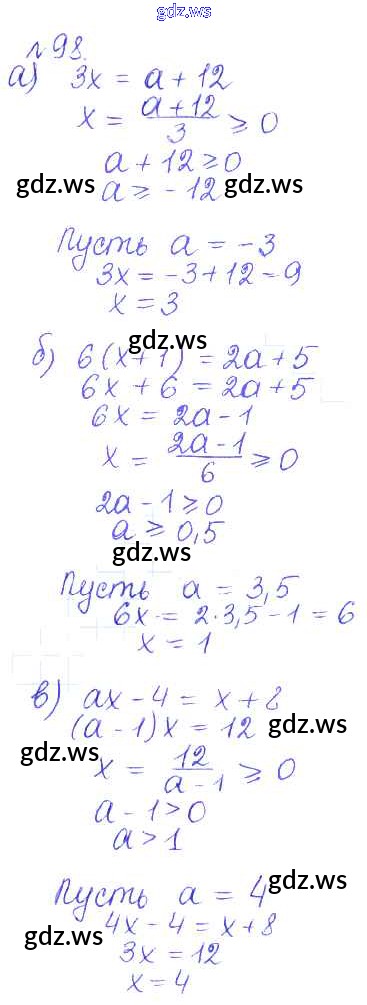 gdz.ws
№98.
а) 3x = a + 12
x = (a+12)/3 ⩾ 0
a + 12 ⩾ 0
gdz.ws a ⩾ -12 gdz.ws
Пусть a = -3
3x = -3 + 12 = 9
x = 3
gdz.ws
б) 6(x+1) = 2a + 5
6x + 6 = 2a + 5
6x = 2a - 1
x = (2a-1)/6 ⩾ 0
2a - 1 ⩾ 0
a ⩾ 0,5
gdz.ws
Пусть a = 3,5
6x = 2·3,5 - 1 = 6
x = 1
в) ax - 4 = x + 8
(a - 1)x = 12 gdz.ws
gdz.ws
x = 12/(a-1) ⩾ 0
a - 1 > 0
a > 1
Пусть a = 4 gdz.ws
4x - 4 = x + 8
gdz.ws 3x = 12
x = 4